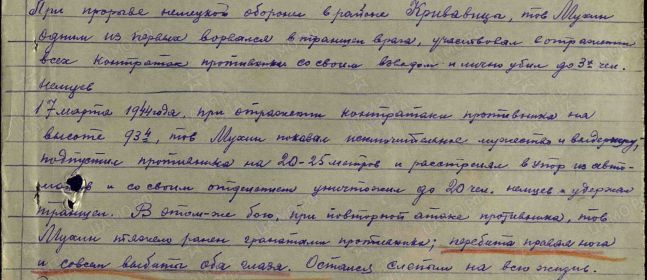 При прорыве немецкой обороны в районе Кривавица, тов Мухин
одним из первых ворвался в траншеи врага, участвовал в отражении
всех контратак противника со своим взводом и лично убил до 3х чел.
немцев
17 марта 1944 года, при отражении контратаки противника на
высоте 93,4, тов Мухин показал исключительное мужество и выдержку,
подпустил противника на 20-25 метров и расстрелял в упор из авто-
и со своим отделением уничтожил до 20 чел. немцев и удержал
траншеи. В этом-же бою, при повторной атаке противника, тов
Мухин тяжело ранен гранатами противника; перебита правая нога
и совсем выбиты оба глаза. Остался слепым на всю жизнь.